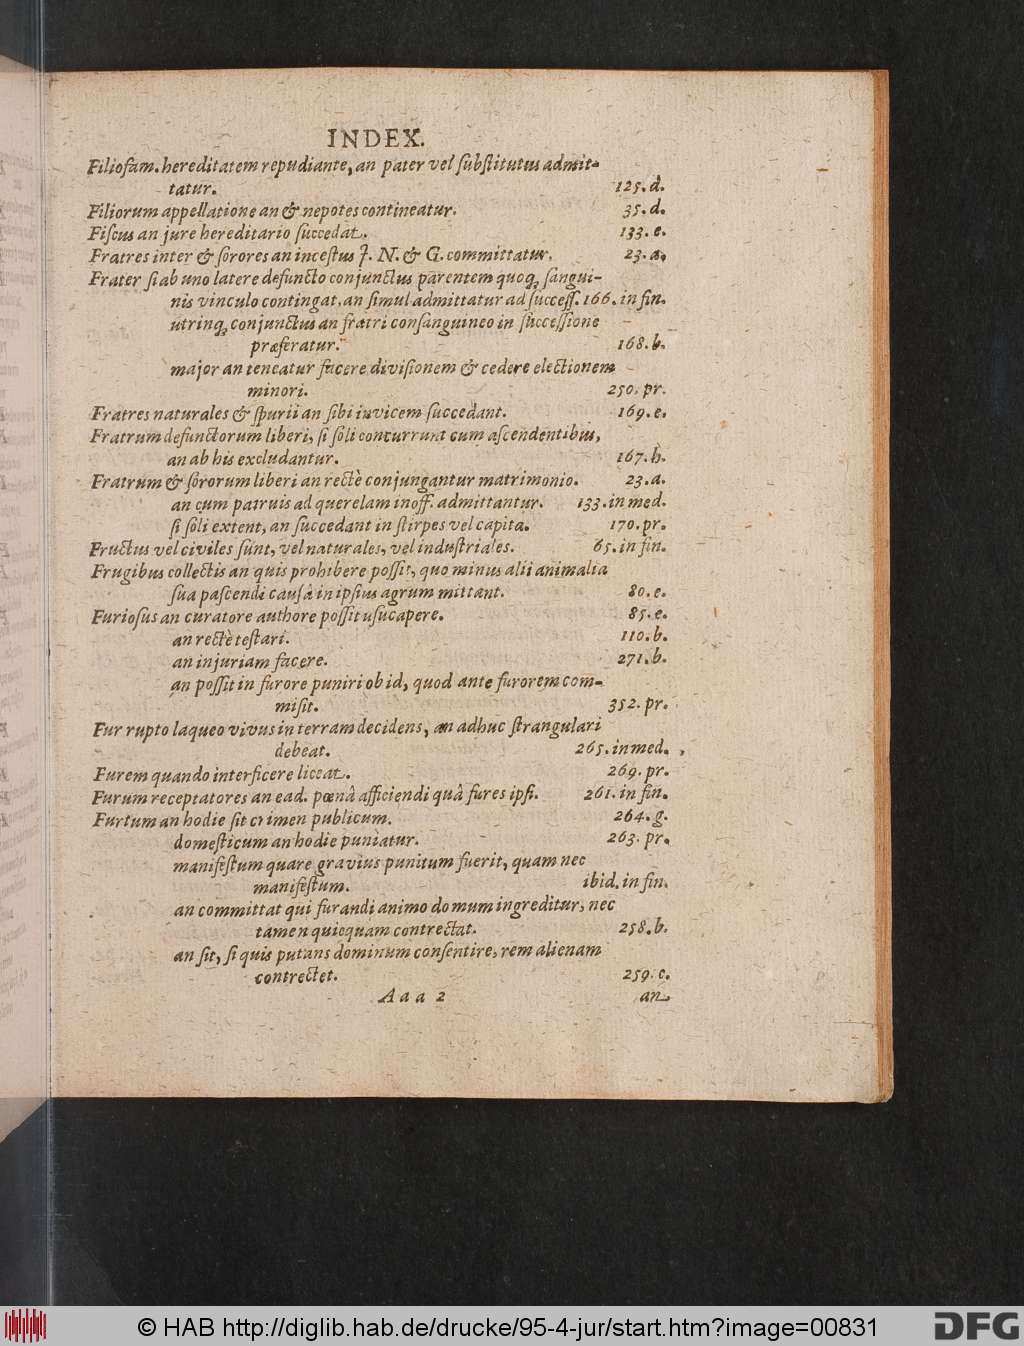 INDEX.
Filiofam. hereditatem repudiante, an pater vel ſubſtitutus admit-
tatur. 125. d.
Filiorum appellatione an & nepotes contineatur. 35. d.
Fiſcus an jure hereditario ſuccedat. 133. e.
Fratres inter & ſorores an inceſtus J. N. & G. committatur. 23. a.
Frater ſi ab uno latere defuncto conjunctus parentem quoq; ſangui-
nis vinculo contingat, an ſimul admittatur ad ſucceſſ. 166. in fin.
utrinq; conjunctus an fratri conſanguineo in ſucceſſione
præferatur. 168. b.
major an teneatur facere diviſionem & cedere electionem
minori. 250. pr.
Fratres naturales & ſpurii an ſibi invicem ſuccedant. 169. e.
Fratrum defunctorum liberi, ſi ſoli concurrunt cum aſcendentibus,
an ab his excludantur. 167. h.
Fratrum & ſororum liberi an rectè conjungantur matrimonio. 23. a.
an cum patruis ad querelam inoff. admittantur. 133. in med.
ſi ſoli extent, an ſuccedant in ſtirpes vel capita. 170. pr.
Fructus vel civiles ſunt, vel naturales, vel induſtriales. 65. in fin.
Frugibus collectis an quis prohibere poſſit, quo minus alii animalia
ſua paſcendi cauſâ in ipſius agrum mittant. 80. e.
Furioſus an curatore authore poſſit uſucapere. 85. e.
an rectè teſtari. 110. b.
an injuriam facere. 271. b.
an poſſit in furore puniri ob id, quod ante furorem com-
miſit. 352. pr.
Fur rupto laqueo vivus in terram decidens, an adhuc ſtrangulari
debeat. 265. in med.
Furem quando interficere liceat. 269. pr.
Furum receptatores an ead. pœnâ afficiendi quâ fures ipſi. 261. in fin.
Furtum an hodie ſit crimen publicum. 264. g.
domeſticum an hodie puniatur. 263. pr.
manifeſtum quare gravius punitum fuerit, quam nec
manifeſtum. ibid. in fin.
an committat qui furandi animo domum ingreditur, nec
tamen quicquam contrectat. 258. b.
an ſit, ſi quis putans dominum conſentire, rem alienam
contrectet. 259. c.
Aaa 2 an
© HAB http://diglib.hab.de/drucke/95-4-jur/start.htm?image=00831
DFG